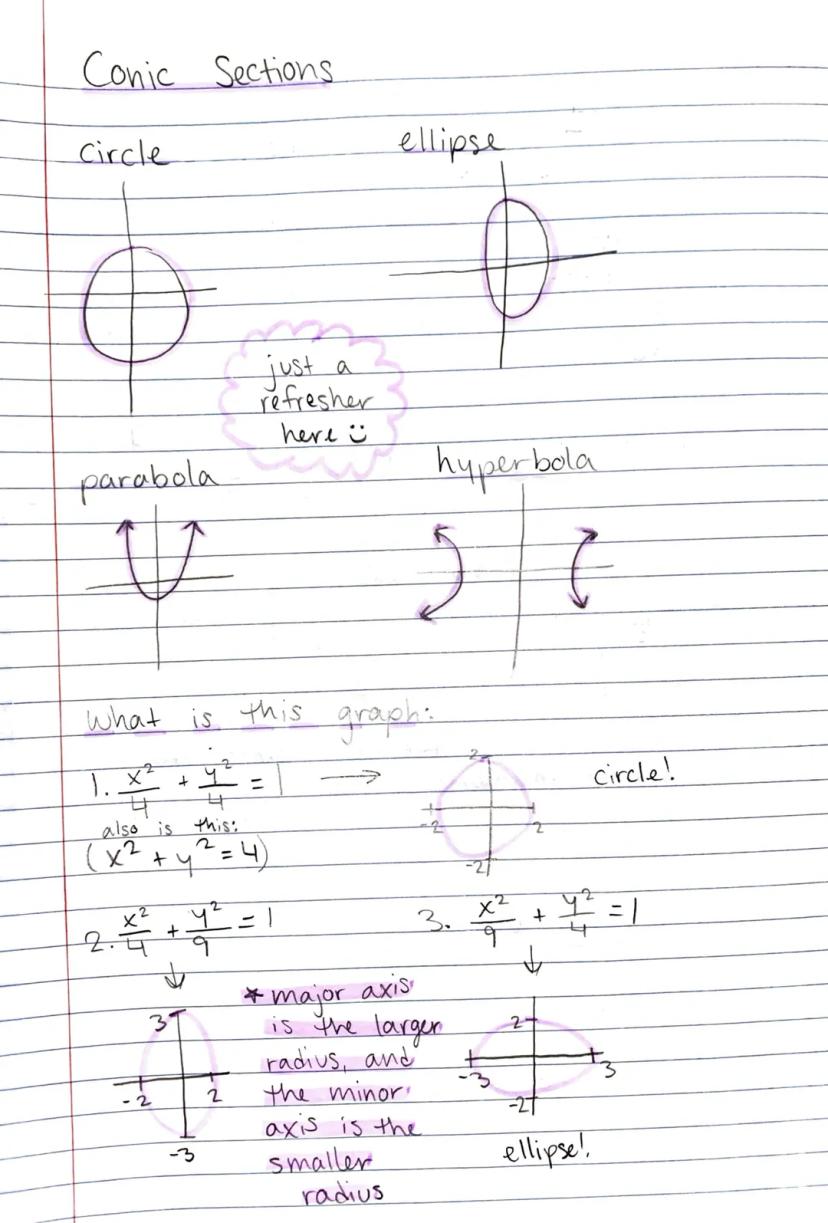 Conic Sections
circle
ellipse
just a
refresher
here
parabola
hyperbola
What is this graph:
1. x²/4 + y²/4 = 1 → circle!
2
-2 2
-2
also is this:
(x² + y² = 4)
2. x²/4 + y²/9 = 1
3. x²/9 + y²/4 = 1
3
-2 2
-3
* major axis
is the larger
radius, and
the minor
axis is the
smaller
radius
2
-3 3
-2
ellipse!